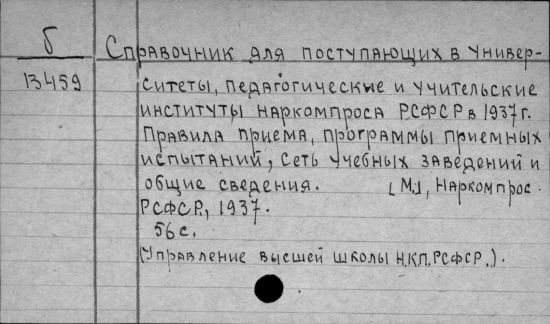 Б
13459
Справочник для поступающих в универ-
ситеты, педагогические и учительские
институты наркомпроса РСФСР в 1937г.
Правила приема, программы приемных
испытаний, сеть учебных заведений и
общие сведения. [М.], Наркомпрос.
РСФСР, 1937.
56с.
(Управление высшей школы Н.К.П.РСФСР.).